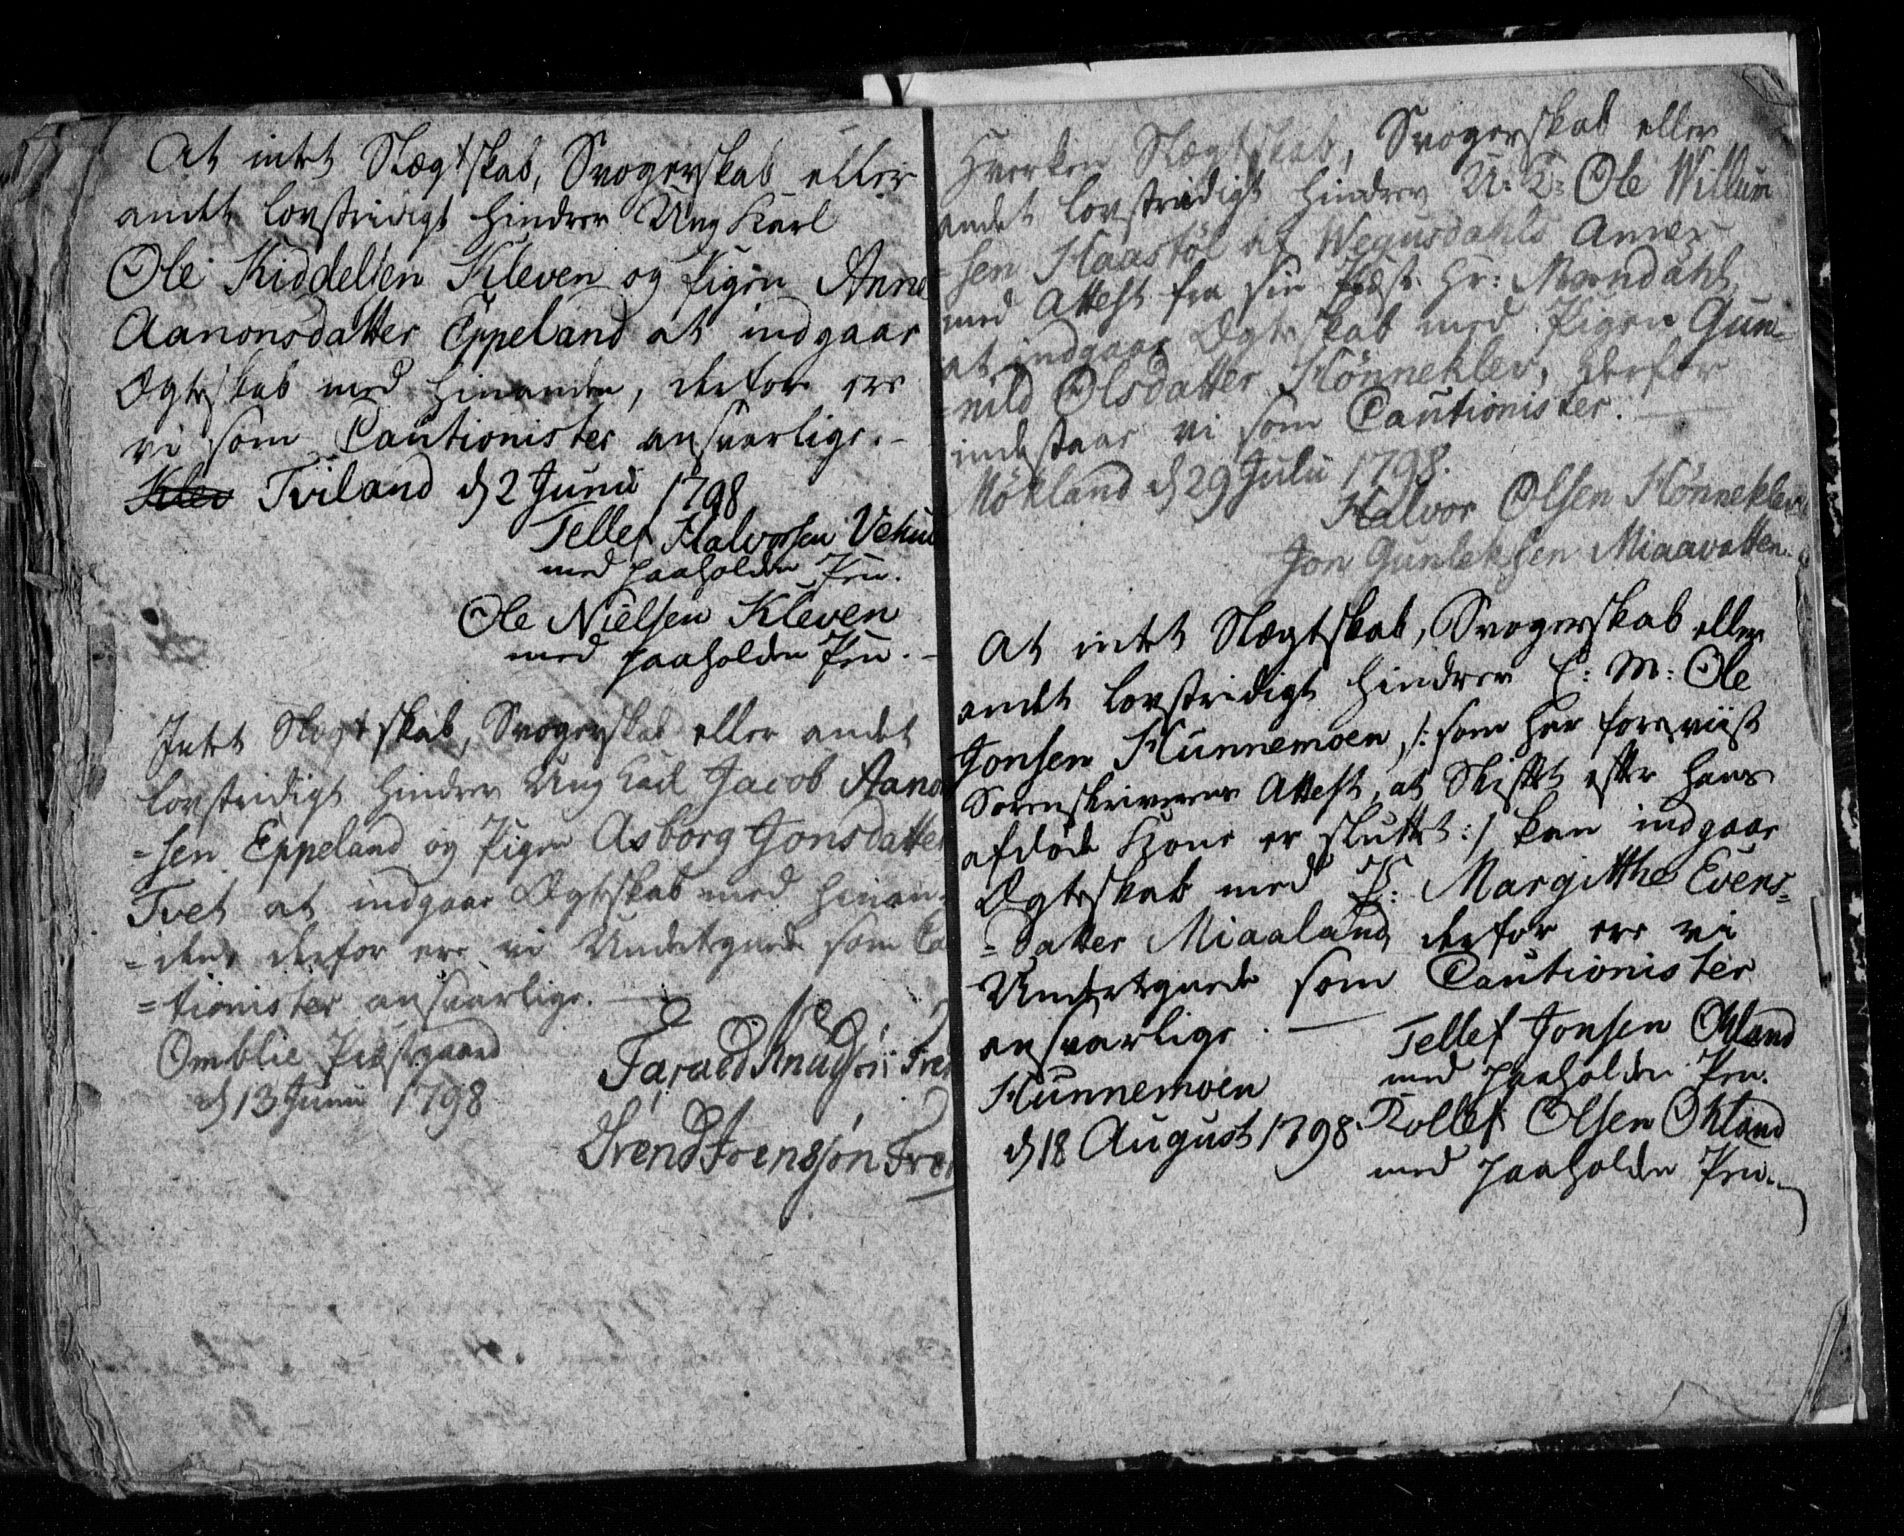 At intet Slægtskab, Svogerskab eller
andet lovstridigt hindrer Ung Karl
Ole Kiddelsen Kleven og Pigen Anne
Aanonsdatter Eppeland at indgaae
Ægteskab med hinanden, derfor ere
vi som Cautionister ansvarlige.-
Klev Tviland d 2 Junii 1798
Tellef Halvorsen Vehus
med paaholden Pen.
Ole Nielsen Kleven
med paaholden Pen.-
Intet Slægtskab, Svogerskab eller andet
lovstridigt hindrer Ung Karl Jacob Aanon
=sen Eppeland og Pigen Asborg Jonsdatter
Tvet at indgaae Ægteskab med hinan=
=den, derfor ere vi Undertegnede som Cau
=tionister ansvarlige.
Omblie Præstgaard
d 13 Junii 1798
Taraald Knudsøn
Svend Svensøn
Hverken Slægtskab, Svogerskab eller
andet lovstridigt hindrer U: K: Ole Willum
=sen Haastøl af Wegusdahls Annex
med Attest fra sin Præst Hr:
at indgaae Ægteskab med Pigen Gun=
=nild Olsdatter Hønneklev, derfor
indestaae vi som Cautionister.
Mökland d 29 Julii 1798.
Halvor Olsen Hønneklev
Jon Gunleksen Miaavatten.
At intet Slægtskab, Svogerskab eller
andet lovstridigt hindrer E: M: Ole
Jonsen Hunnemoen, /: som har foreviist
Sorenskriverens Attest, at Skiftet efter hans
afdøde Kone er sluttet :/ kan indgaae
Ægteskab med P: Margitthe Evens=
=datter Miaaland, derfor ere vi
Undertegnede som Cautionister
ansvarlige.
Hunnemoen
d 18 August 1798.
Tellef Jonsen Okland
med paaholden Pen.
Rollef Olsen Okland
med paaholden Pen.